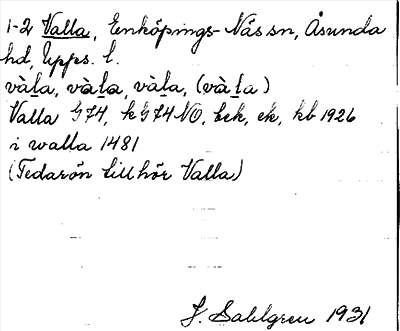 1-2 Valla, Enköpings-Näs sn, Åsunda
hd, Upps. l.
vàl̲a, vàl̲a, vàl̲a, (vàl̲a)
Valla G74, k G74 NO, ek, kb 1926
i walla 1481
(Tedarön tillhör Valla)
J. Sahlgren 1931